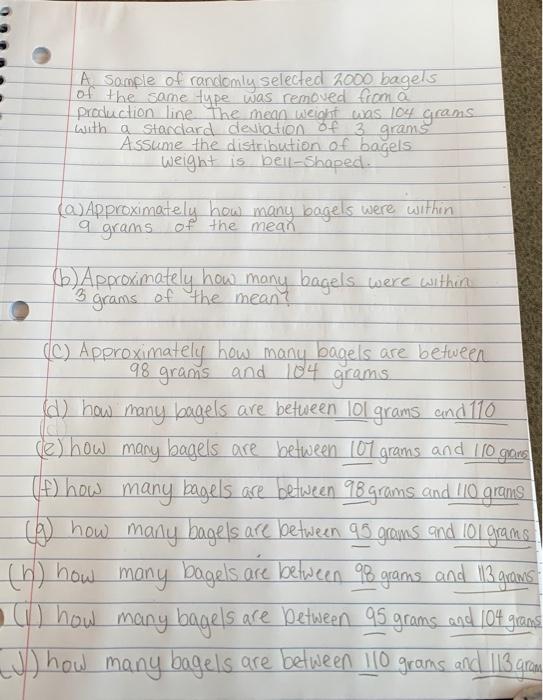 A Sample of randomly selected 2000 bagels
of the same type was removed from a
production line. The mean weight was 104 grams
with a standard deviation of 3 grams
Assume the distribution of bagels
weight is bell-shaped.
(a) Approximately how many bagels were within
9 grams of the mean
(b) Approximately how many bagels were within
3 grams of the mean?
(C) Approximately how many bagels are between
98 grams and 104 grams
(d) how many bagels are between 101 grams and 110
(e) how many bagels are between 107 grams and 110 grams
(f) how many bagels are between 98 grams and 110 grams
(g) how many bagels are between 95 grams and 101 grams
(h) how many bagels are between 98 grams and 113 grams
(i) how many bagels are between 95 grams and 104 grams
(J) how many bagels are between 110 grams and 113 gram